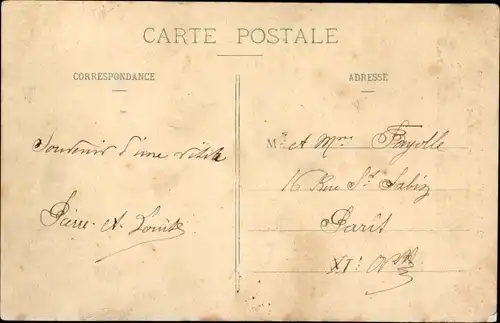 CARTE POSTALE
CORRESPONDANCE
ADRESSE
Souvenir d'une visite
Pierre et Louise
Mr et Mme Fayolle
16 Rue St Sabin
Paris
XIe Arr